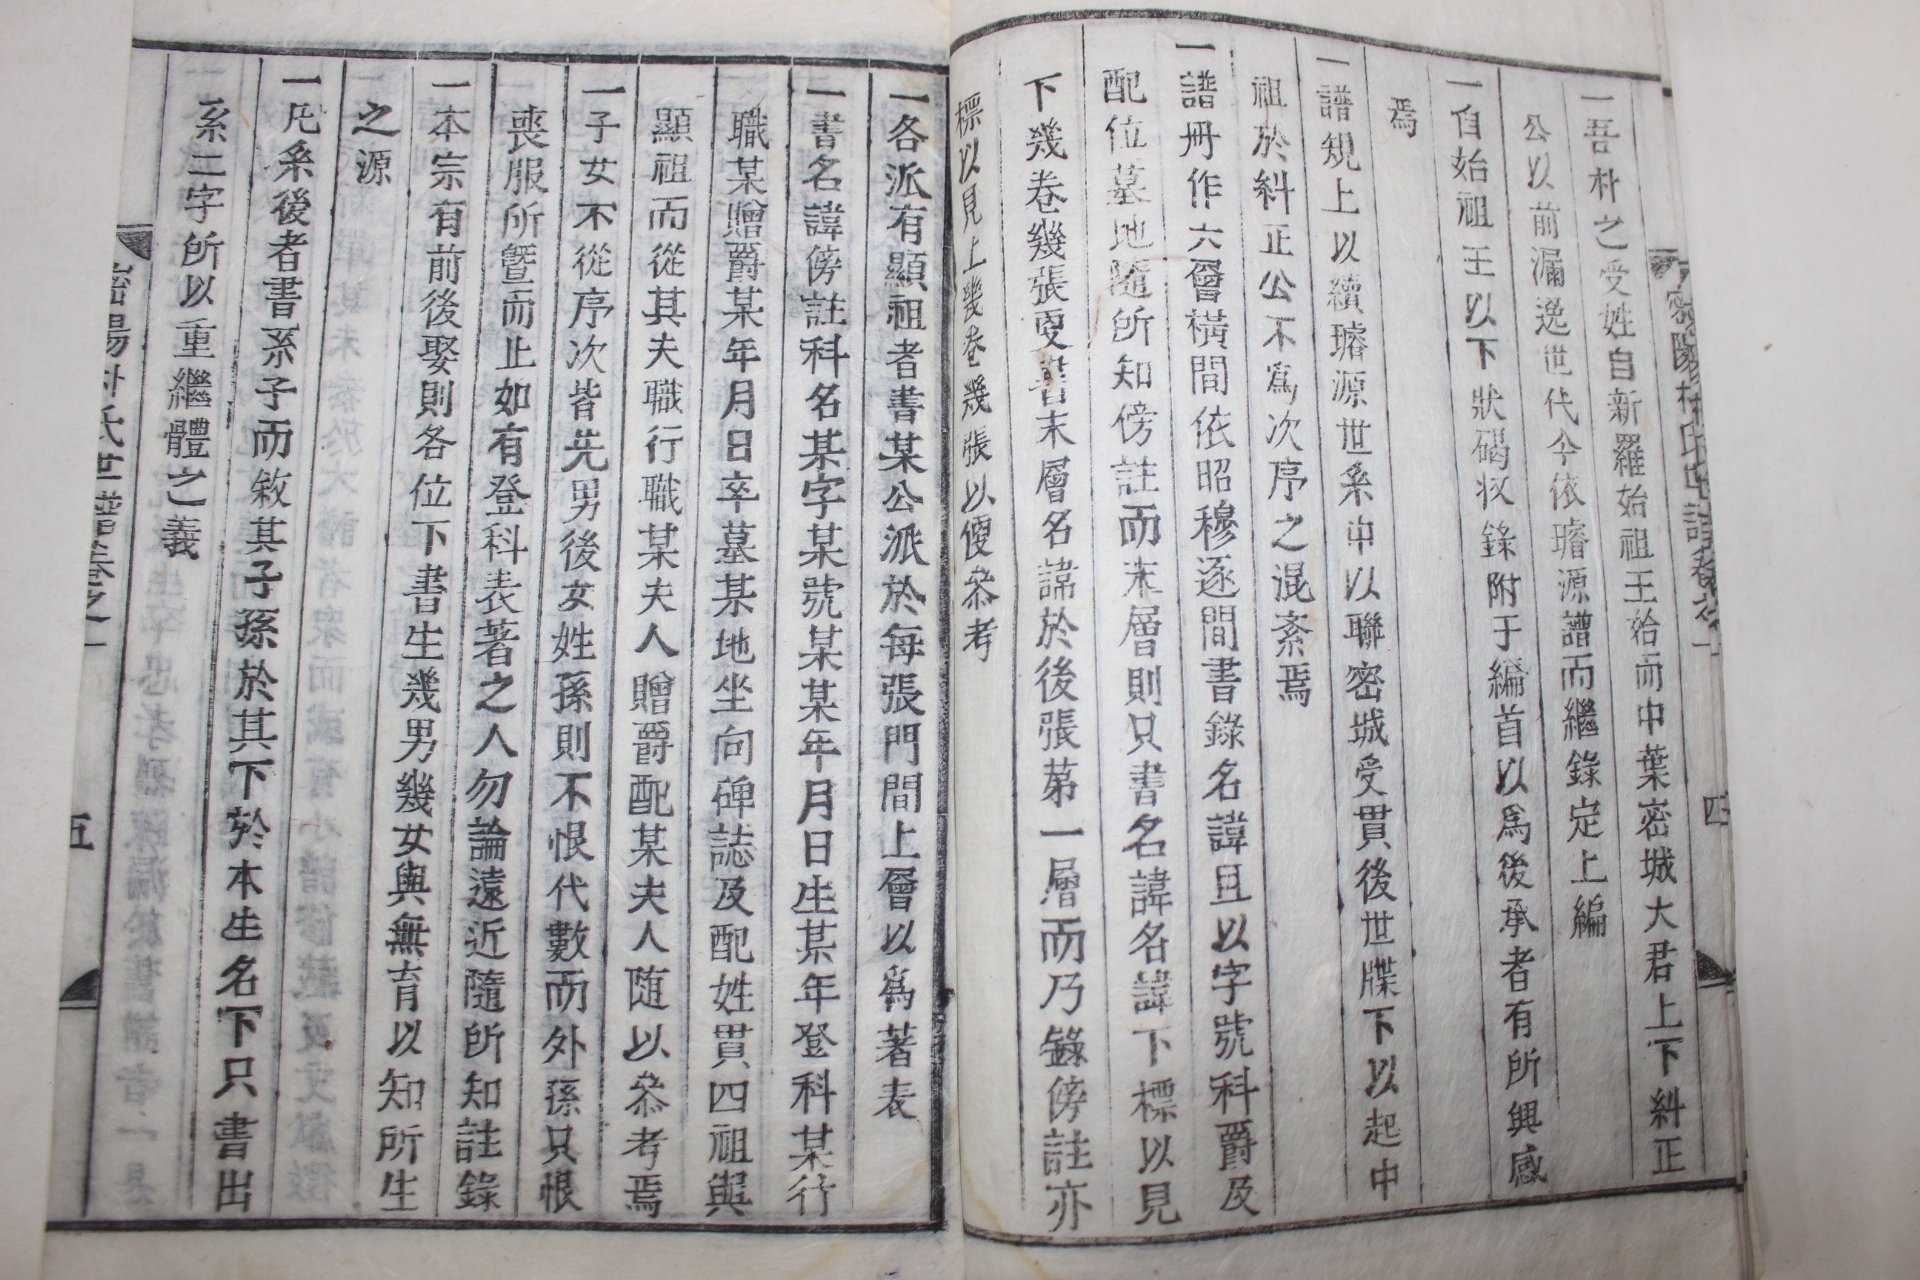 密陽朴氏世譜卷之一
四
一吾朴之受姓自新羅始祖王始而中葉密城大君上下糾正
公以前漏逸世代今依璿源譜而繼錄定上編
一自始祖王以下狀碣收錄附于編首以爲後承者有所興感
焉
一譜規上以續璿源世系中以聯密城受貫後世牒下以起中
祖於糾正公不爲次序之混紊焉
一譜冊作六層橫間依昭穆逐間書錄名諱且以字號科爵及
配位墓地隨所知傍註而末層則只書名諱名諱下標以見
下幾卷幾張更書末層名諱於後張第一層而乃錄傍註亦
標以見上幾卷幾張以便叅考
一各派有顯祖者書某公派於每張門間上層以爲著表
一書名諱傍註科名某字某號某某年月日生某年登科某行
職某贈爵某年月日卒墓某地坐向碑誌及配姓貫四祖與
顯祖而從其夫職行職某夫人贈爵配某夫人隨以叅考焉
一子女不從序次皆先男後女姓孫則不恨代數而外孫只恨
喪服所曁而止如有登科表著之人勿論遠近隨所知註錄
一本宗有前後娶則各位下書生幾男幾女與無育以知所生
之源
一凡系後者書系子而敘其子孫於其下於本生名下只書出
系二字所以重繼體之義
密陽朴氏世譜卷之一
五